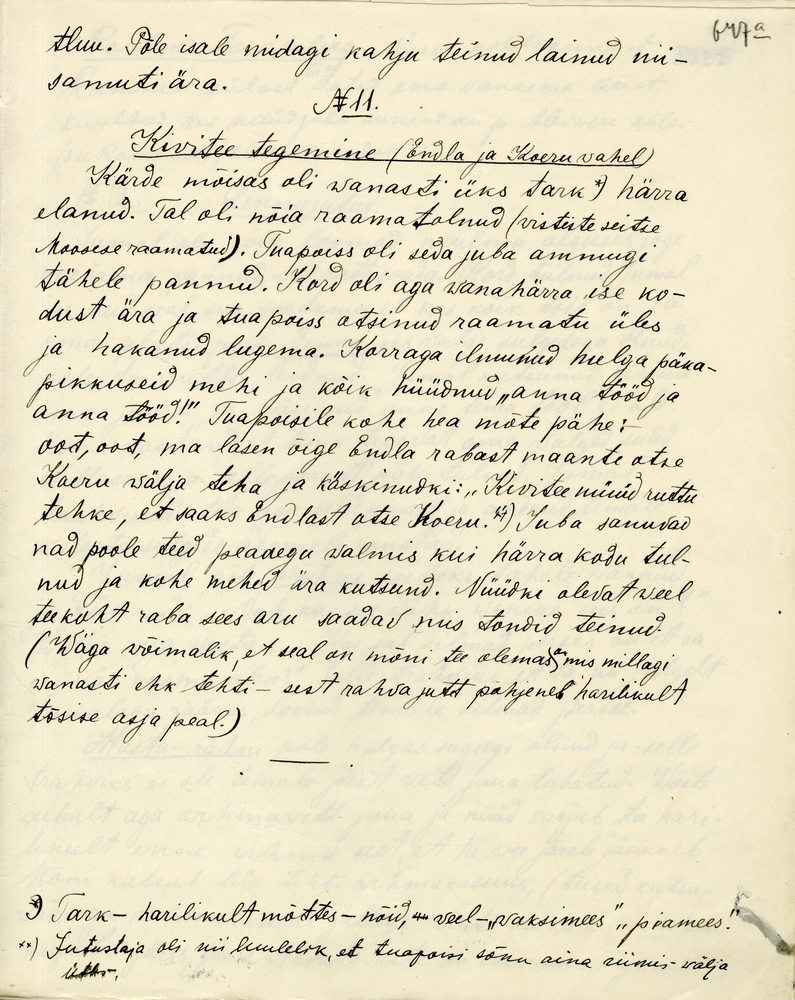 647a
tluu. Pole isale midagi kahju teinud lainud nii-
samuti ära.
№ 11.
Kivitee tegemine (Endla ja Koeru vahel)
Kärde mõisas oli wanasti üks tark*) härra
elanud. Tal oli nõia raamatolnud (vististe seitse
Moosese raamatud). Tuapoiss oli seda juba ammugi
tähele pannud. Kord oli aga wanahärra ise ko-
dust ära ja tuapoiss otsinud raamatu üles
ja hakanud lugema. Korraga ilmunud hulga päka-
pikkuseid mehi ja kõik hüüdnud „anna tööd ja
anna tööd!" Tuapoisile kohe hea mõte pähe:-
oot, oot, ma lasen õige Endla rabast maante otse
Koeru wälja teha ja käskinudki: „Kivitee nüüd ruttu
tehke, et saaks Endlast otse Koeru.**) Juba sanuvad
nad poole teed peaaegu walmis kui härra kodu tul-
nud ja kohe mehed ära kutsund. Nüüdki olevat weel
teekoht raba sees aru saadav mis tondid teinud.
(Wäga võimalik, et seal on mõni tee olemas mis millagi
wanasti ehk tehti - sest rahvajutt põhjeneb harilikult
tõsise asja peal.)
*) Tark - harilikult mõttes - nõid, weel - „waksimees" „piamees."
**) Jutustaja oli nii luulelik, et tuapoisi sõnu aina riimis wälja